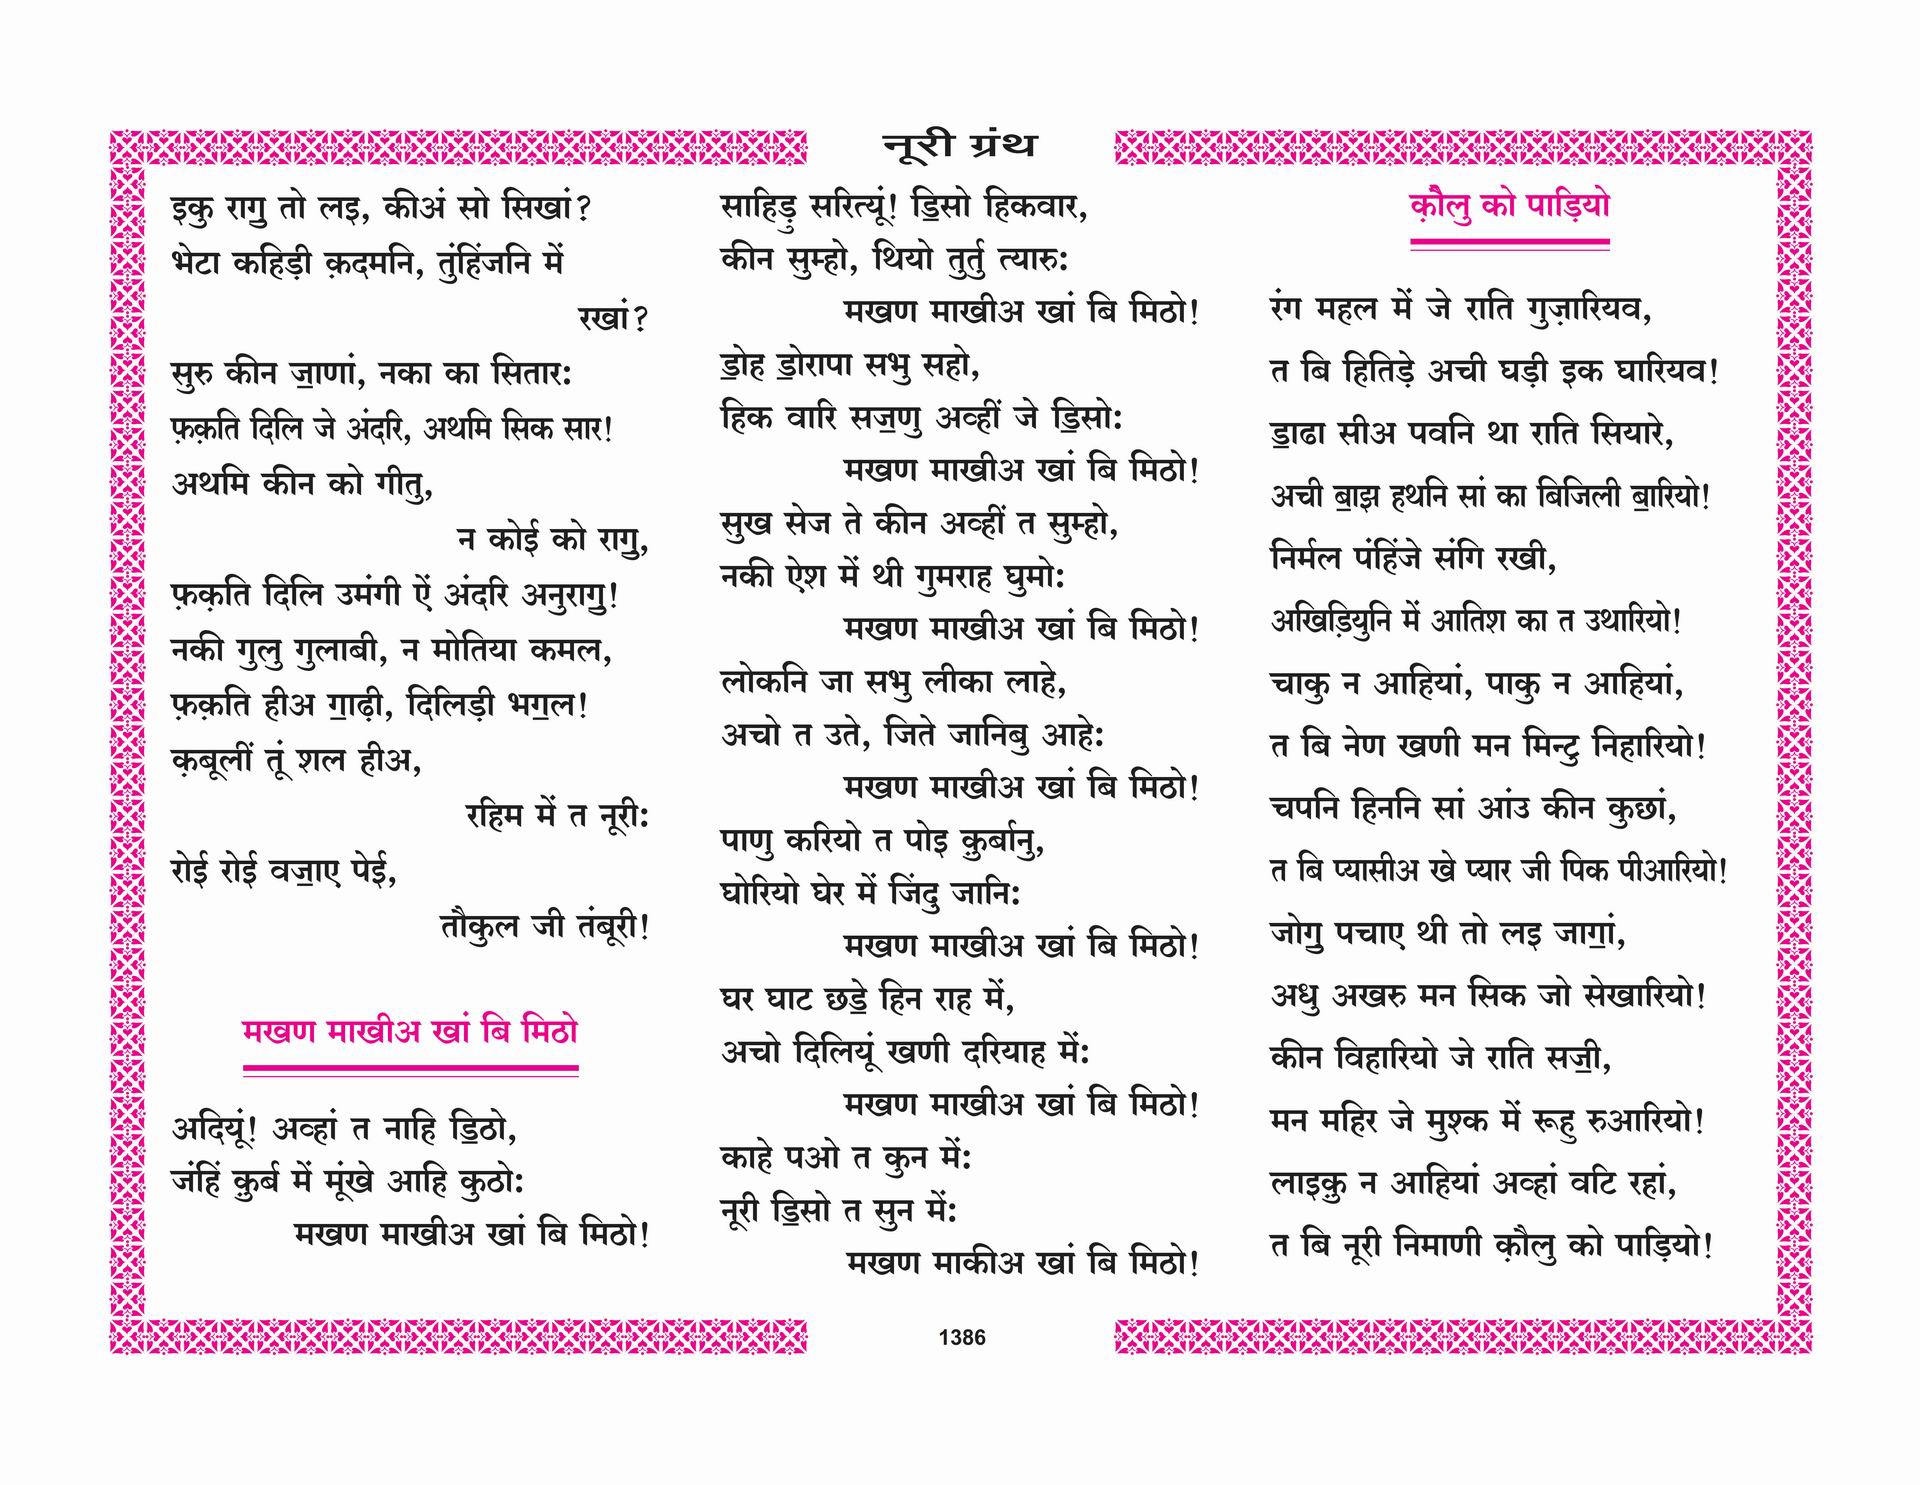 नूरी ग्रंथ
इकु रागु॒ तो लइ, कीअं सो सिखां?
भेटा कहिड़ी क़दमनि, तुंहिंजनि में
रखां?
सुरु कीन ॼाणां, नका का सितार:
फ़क़ति दिलि जे अंदरि, अथमि सिक सार!
अथमि कीन को गीतु,
न कोई को रागु॒,
फ़क़ति दिलि उमंगी ऐं अंदरि अनुरागु॒!
नकी गुलु गुलाबी, न मोतिया कमल,
फ़क़ति हीअ ॻाढ़ी, दिलिड़ी भॻल!
क़बूलीं तूं शल हीअ,
रहिम में त नूरी:
रोई रोई वॼाए पेई,
तौकुल जी तंबूरी!
मखण माखीअ खां बि मिठो
अदियूं! अव्हां त नाहि ॾिठो,
जंहिं क़ुर्ब में मूंखे आहि कुठो:
मखण माखीअ खां बि मिठो!
साहिड़ु सरित्यूं! ॾिसो हिकवार,
कीन सुम्हो, थियो तुर्तु त्यारु:
मखण माखीअ खां बि मिठो!
ॾोह ॾोरापा सभु सहो,
हिक वारि सॼणु अव्हीं जे ॾिसो:
मखण माखीअ खां बि मिठो!
सुख सेज ते कीन अव्हीं त सुम्हो,
नकी ऐश में थी गुमराह घुमो:
मखण माखीअ खां बि मिठो!
लोकनि जा सभु लीका लाहे,
अचो त उते, जिते जानिबु आहे:
मखण माखीअ खां बि मिठो!
पाणु करियो त पोइ क़ुर्बानु,
घोरियो घेर में जिंदु जानि:
मखण माखीअ खां बि मिठो!
घर घाट छॾे हिन राह में,
अचो दिलियूं खणी दरियाह में:
मखण माखीअ खां बि मिठो!
काहे पओ त कुन में:
नूरी ॾिसो त सुन में:
मखण माकीअ खां बि मिठो!
क़ौलु को पाड़ियो
रंग महल में जे राति गुज़ारियव,
त बि हितिड़े अची घड़ी इक घारियव!
ॾाढा सीअ पवनि था राति सियारे,
अची ॿाझ हथनि सां का बिजिली ॿारियो!
निर्मल पंहिंजे संगि रखी,
अखिड़ियुनि में आतिश का त उथारियो!
चाकु न आहियां, पाकु न आहियां,
त बि नेण खणी मन मिन्टु निहारियो!
चपनि हिननि सां आंउ कीन कुछां,
त बि प्यासीअ खे प्यार जी पिक पीआरियो!
जोगु पचाए थी तो लइ जाॻां,
अधु अखरु मन सिक जो सेखारियो!
कीन विहारियो जे राति सॼी,
मन महिर जे मुश्क में रूहु रुआरियो!
लाइक़ु न आहियां अव्हां वटि रहां,
त बि नूरी निमाणी क़ौलु को पाड़ियो!
1386